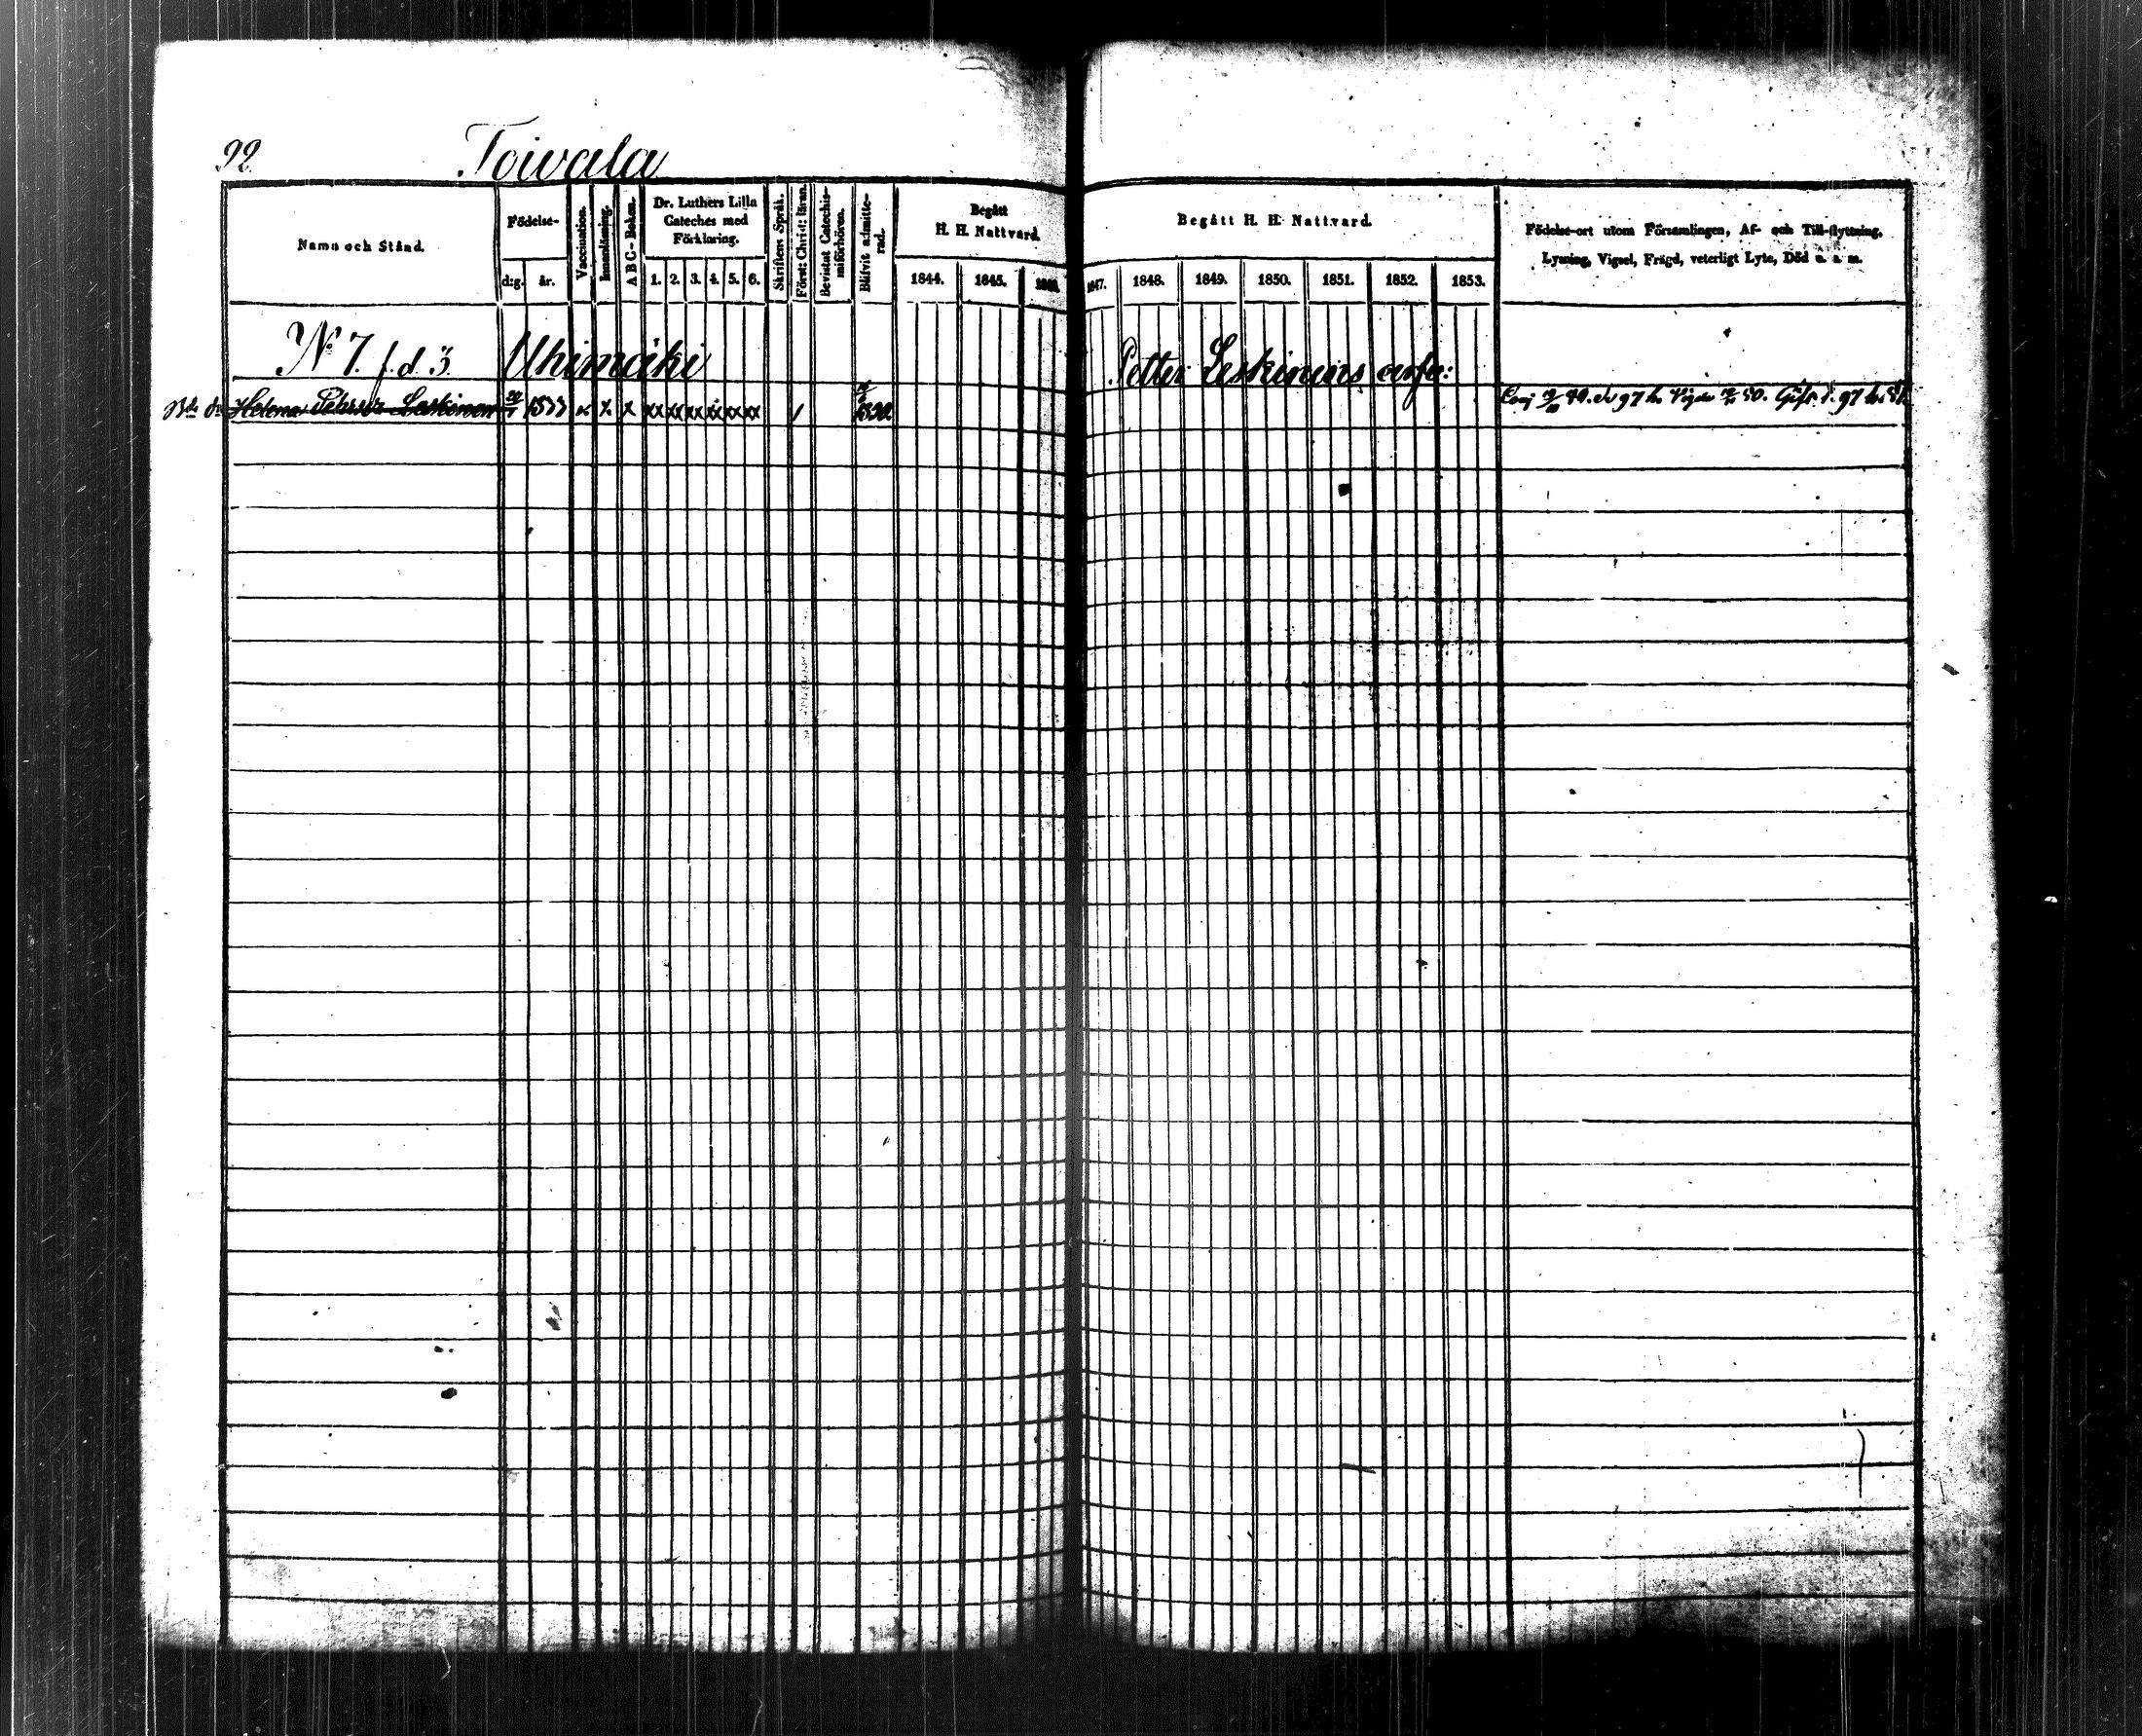 92 Toivala
Namn och Stånd.
Födelse-
d:g. år.
Vaccination.
Innanläsning.
A B C - Boken.
Dr. Luthers Lilla
Cateches med
Förklaring.
1. 2. 3. 4. 5. 6.
Skriftens Språk.
Först: Christ: läran.
Bevistat Catechis-
miförhören.
Blifvit admitte-
rad.
Begått
H. H. Nattvard.
1844. 1845. 1846.
Begått H. H. Nattvard.
1847. 1848. 1849. 1850. 1851. 1852. 1853.
Födelse-ort utom Församlingen, Af- och Till-flyttning,
Lysning, Vigsel, Frägd, veterligt Lyte, Död u. s. m.
No 7. f.d. 3. Uhimäki Petter Leskinens
Helena Pehrsdr Leskinen 1833 x x x xx xx xx xx xx xx